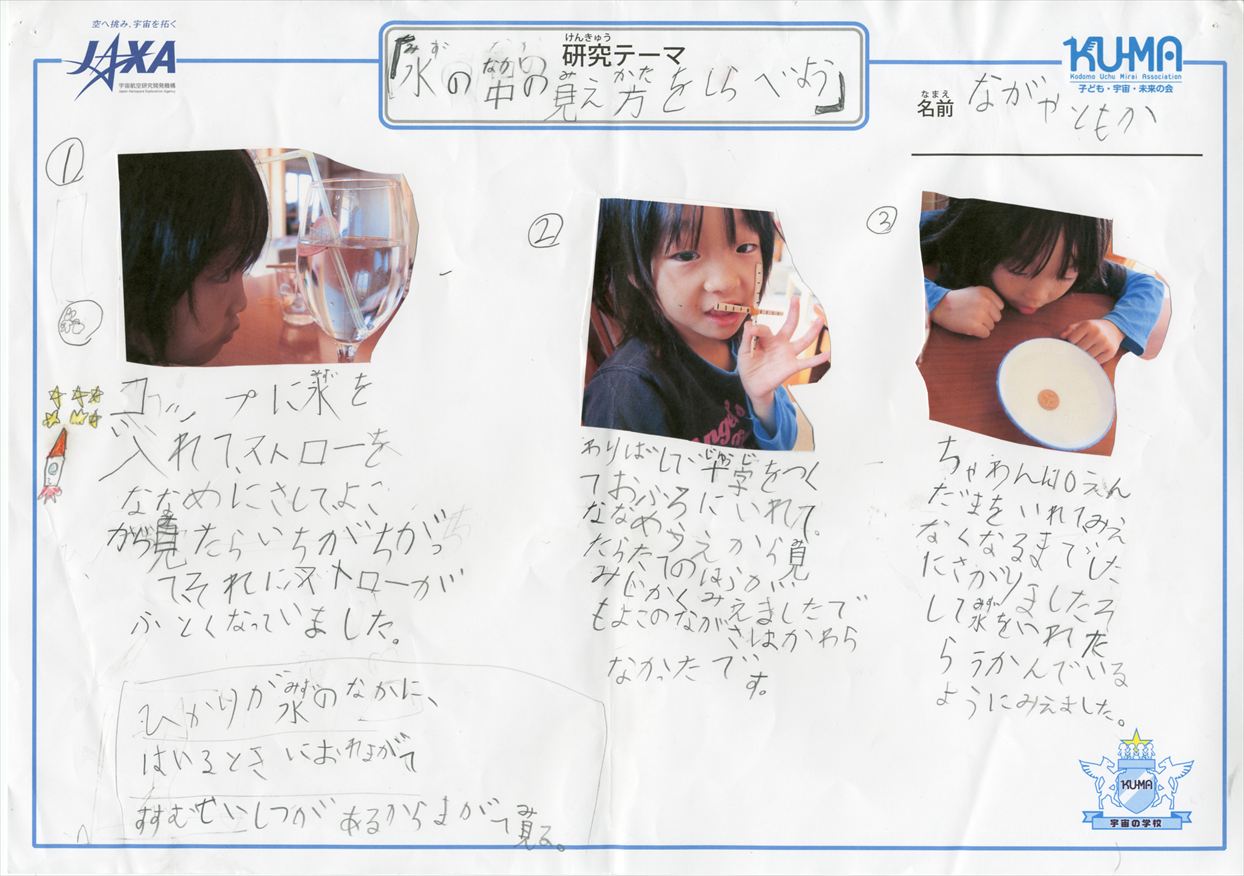 空へ挑み、宇宙を拓く
JAXA
宇宙航空研究開発機構
Japan Aerospace Exploration Agency
けんきゅう
研究テーマ
みず なか み かた
「水の中の見え方をしらべよう」
KU-MA
Kodomo Uchu Mirai Association
子ども・宇宙・未来の会
なまえ
名前 ながやともか
①
みず
コップに水を
入れて、ストローを
ななめにさしてよこ
から見たらいちがちがっ
て、それにストローが
ふとくなっていました。
ひかりが水のなかに、
はいるときにおれまがて
すすむせいしつがあるからまがって見る。
②
わりばしで、十字をつく
ておふろにいれて。
ななめうえから見
たらたてのほうが、
みじかくみえましたで
もよこのながさはかわら
なかったで
す。
③
ちゃわんに10えん
だまをいれてみえ
なくなるまでした
にさがりましたそ
して水をいれた
らうかんでいる
ようにみえました。
KU-MA
宇宙の学校